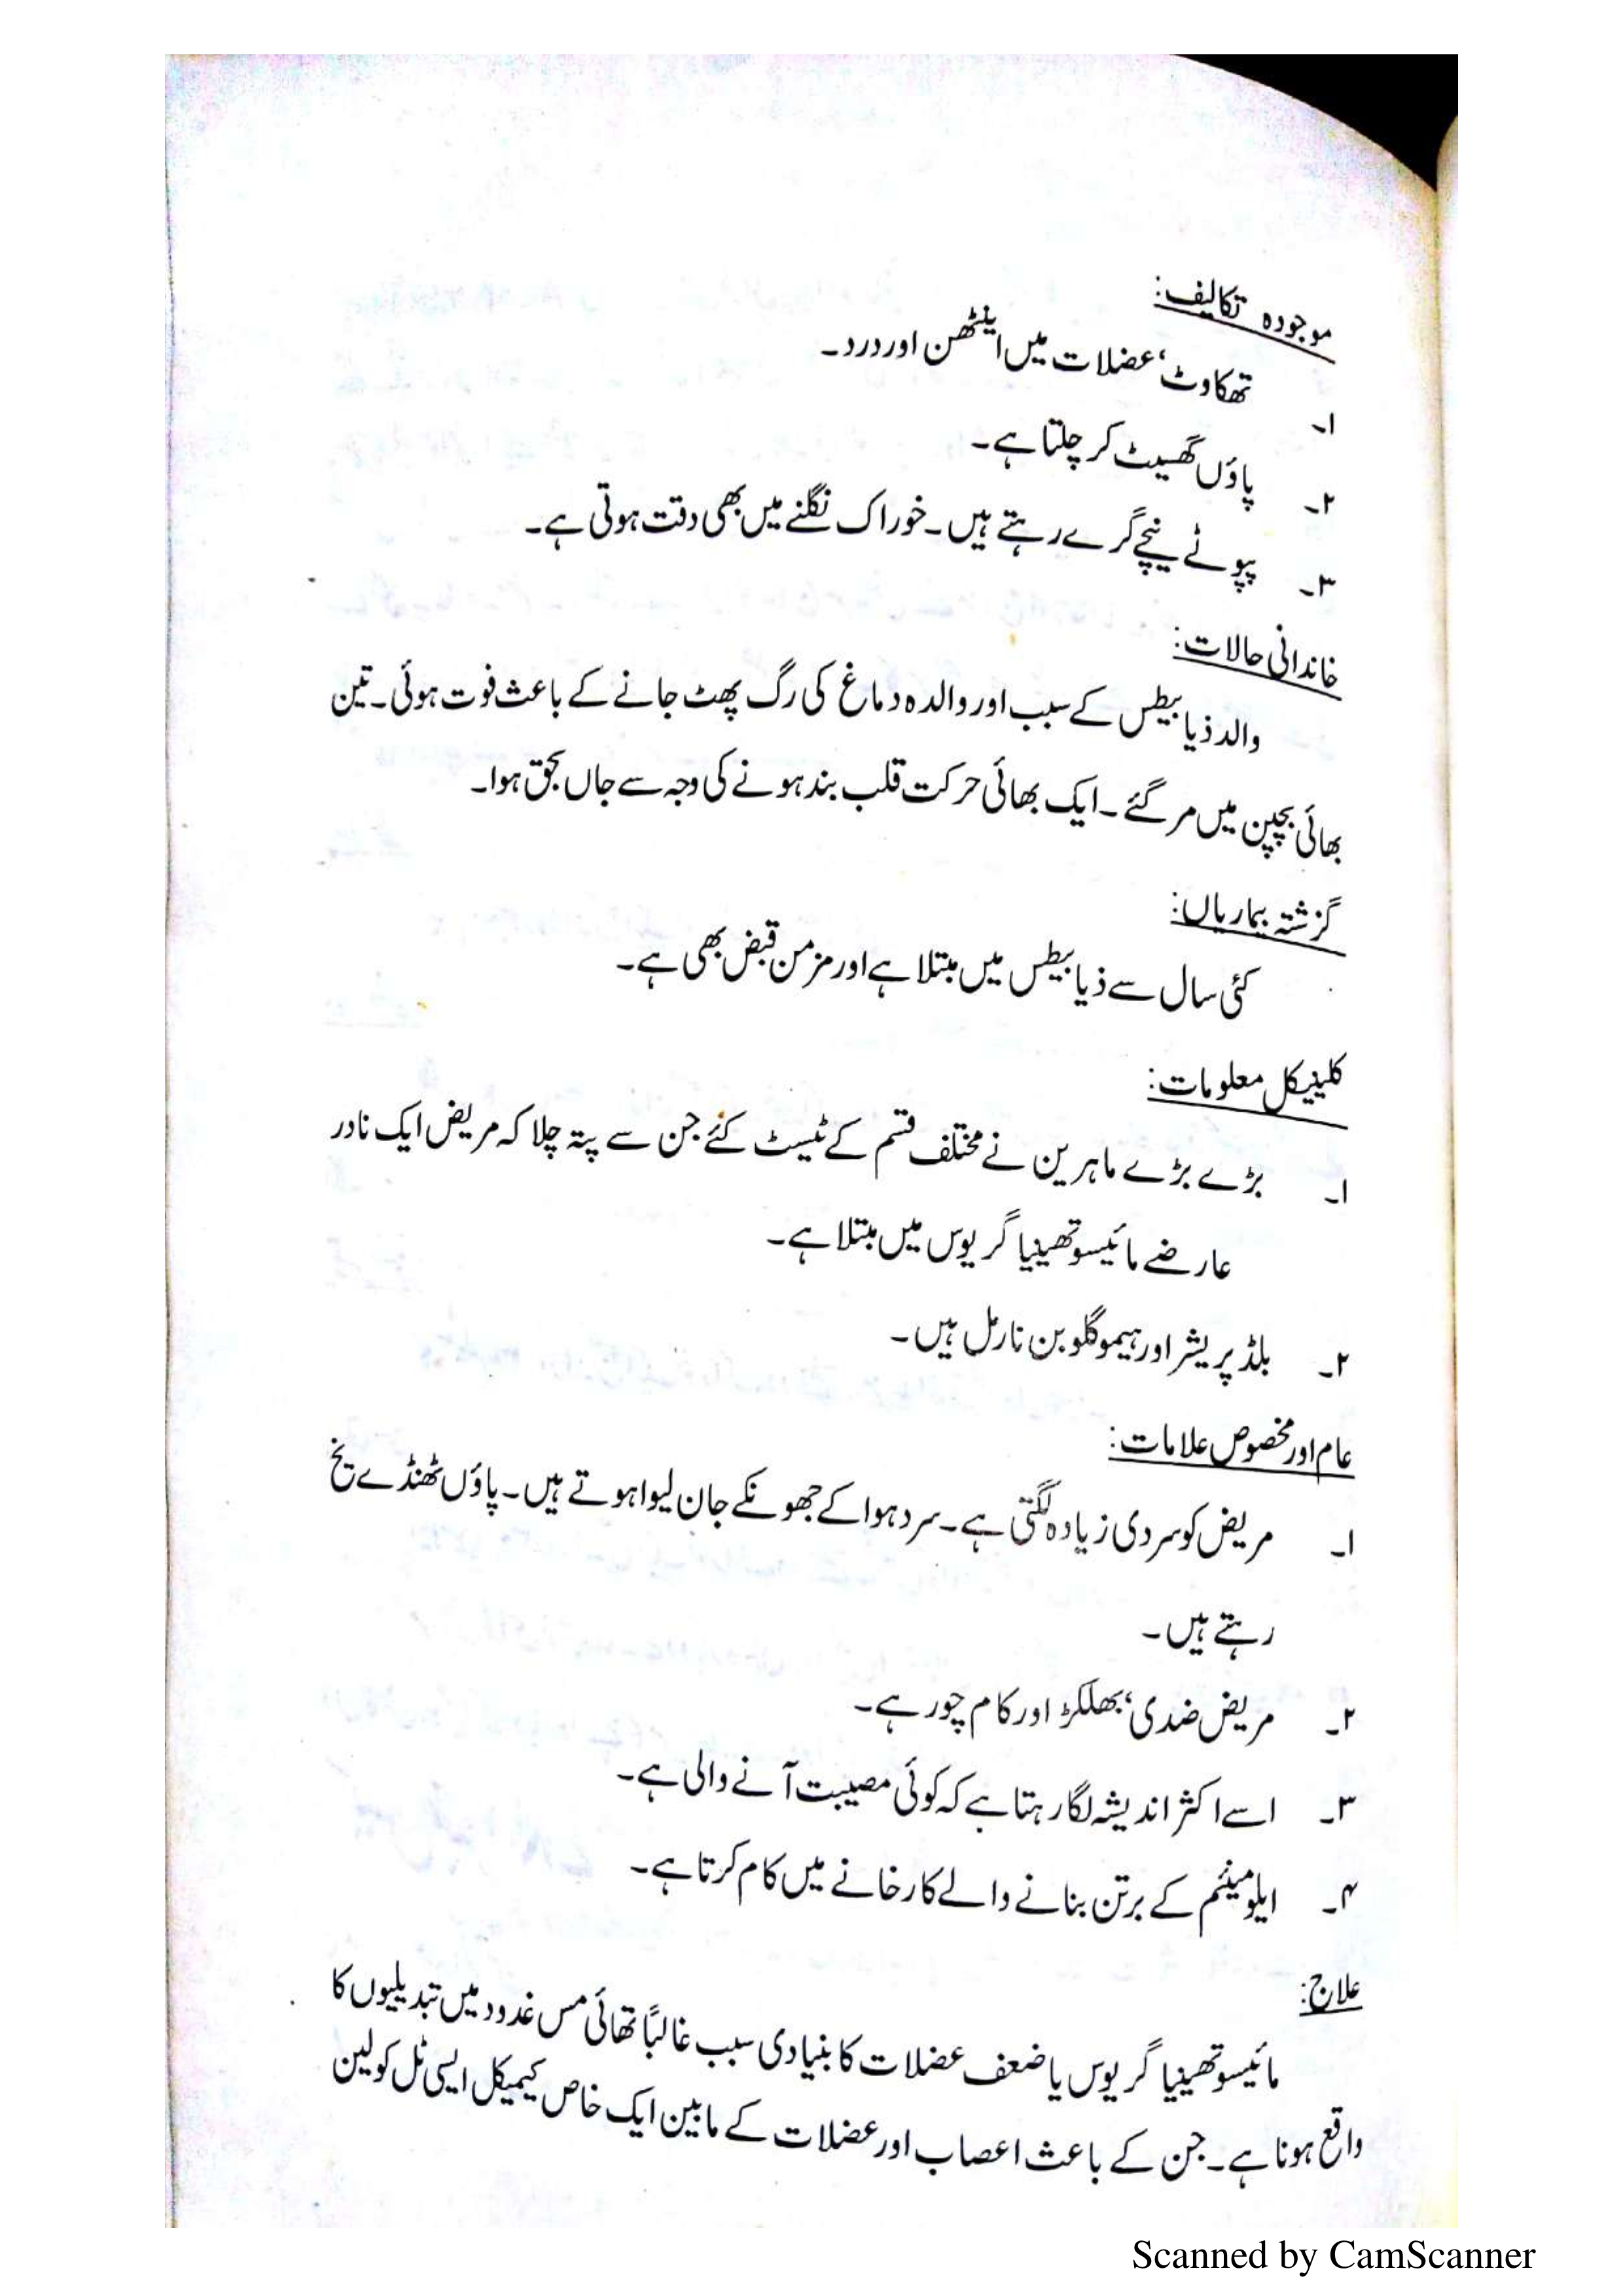 موجودہ تکالیف:
۱۔ تھکاوٹ، عضلات میں اینٹھن اور درد۔
۲۔ پاؤں گھسیٹ کر چلتا ہے۔
۳۔ پپوٹے نیچے گرے رہتے ہیں۔ خوراک نگلنے میں بھی دقت ہوتی ہے۔
خاندانی حالات:
والد ذیابیطس کے سبب اور والدہ دماغ کی رگ پھٹ جانے کے باعث فوت ہوئی۔ تین
بھائی بچپن میں مر گئے۔ ایک بھائی حرکت قلب بند ہونے کی وجہ سے جاں بحق ہوا۔
گزشتہ بیماریاں:
کئی سال سے ذیابیطس میں مبتلا ہے اور مزمن قبض بھی ہے۔
کلینیکل معلومات:
۱۔ بڑے بڑے ماہرین نے مختلف قسم کے ٹیسٹ کئے جن سے پتہ چلا کہ مریض ایک نادر
عارضے مائیسوتھینیا گریوس میں مبتلا ہے۔
۲۔ بلڈ پریشر اور ہیموگلوبن نارمل ہیں۔
عام اور مخصوص علامات:
۱۔ مریض کو سردی زیادہ لگتی ہے۔ سرد ہوا کے جھونکے جان لیوا ہوتے ہیں۔ پاؤں ٹھنڈے یخ
رہتے ہیں۔
۲۔ مریض ضدی، بھلکڑ اور کام چور ہے۔
۳۔ اسے اکثر اندیشہ لگا رہتا ہے کہ کوئی مصیبت آنے والی ہے۔
۴۔ ایلومینیم کے برتن بنانے والے کارخانے میں کام کرتا ہے۔
علاج:
مائیسوتھینیا گریوس یا ضعف عضلات کا بنیادی سبب غالباً تھائی مس غدود میں تبدیلیوں کا
واقع ہونا ہے۔ جن کے باعث اعصاب اور عضلات کے مابین ایک خاص کیمیکل ایسی ٹل کولین
Scanned by CamScanner